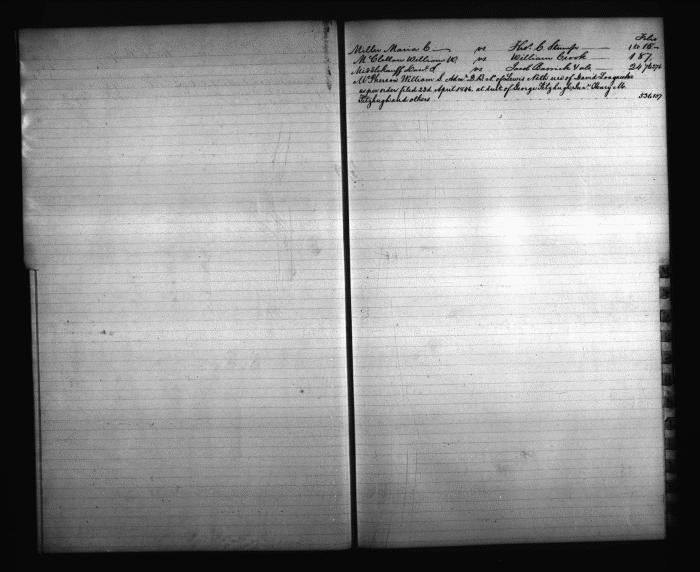 Folio
Miller Maria C vs Thos. C. Stumps 1 to 15
McClellan William W. vs William Crook 187
Middlekauff Danl. S. vs Jacob Barrick & als. 247&276
McPherson William S. Adm. D.B.N. of Lewis Neth use of David Longnecker
as per order filed 23d. April 1884. at suit of George Fitzhugh Henry M.
Fitzhugh and others 536,137